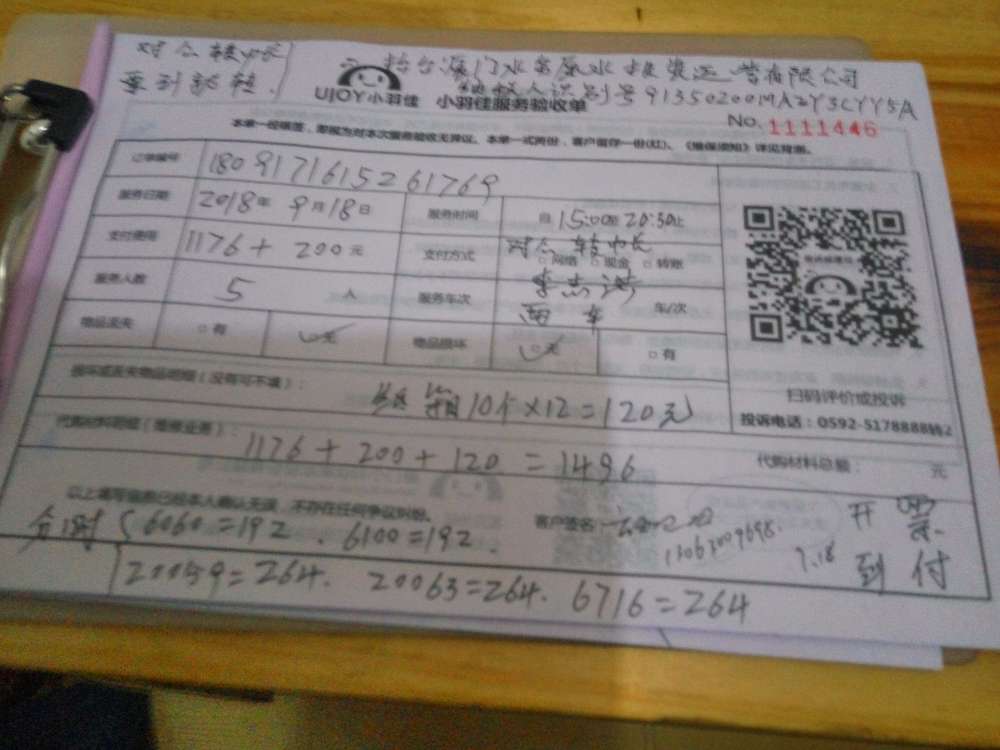 对公转账
票到就转.
抬台厦门水务原水投资运营有限公司
纳税人识别号91350200MA2Y3CYY5A
UJOY小羽佳 小羽佳服务验收单
No. 1111446
本单一经填签，即视为对本次服务验收无异议。本单一式两份，客户留存一份(红)。《维保须知》详见背面。
订单编号 180917161526 1769
服务日期 2018年 9月18日 服务时间 自15:00至20:30止
支付费用 1176+200元 支付方式 对公转账 □网络 □现金 □转账
服务人数 5人 服务车次 李志洪 两车 车/次
物品丢失 □有 □无 物品损坏 □无 □有
扫码评价或投诉
投诉电话：0592-5178888转2
损坏或丢失物品明细（没有可不填）： 纸箱10个×12=120元
代购材料明细（维修业务）： 1176+200+120=1496 代购材料总额： 元
以上填写信息已经本人确认无误，不存在任何争议纠纷。 客户签名：
13063009698.
9.18
开票
到付
分别 6060=192、6100=192.
20059=264. 20063=264. 6716=264